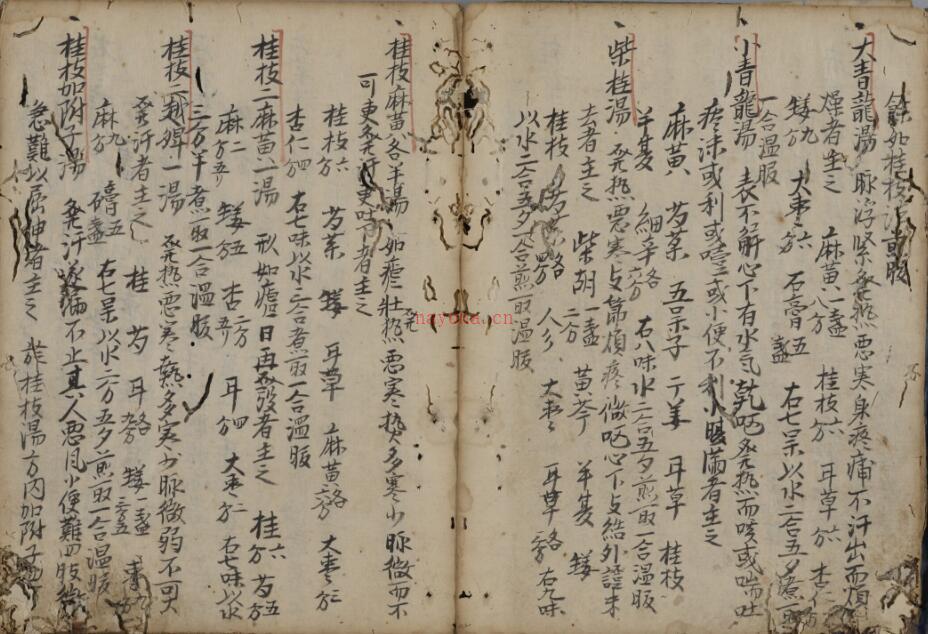 餘如桂枝法或服
大青龍湯 脉浮緊發熱悪寒身疼痛不汗出而煩
燥者主之 麻黄 八分 桂枝 六分 耳草 六分 杏仁
矮 九分 大枣 六分 石膏 五 右七味以水二合五夕煮取
一合温服
小青龍湯 表不解心下有水氣乾呕発热而咳或喘吐
疼沫或利或噎或小便不利小腹滿者主之
麻黄 芍藥 五味子 干姜 耳草 桂枝
半夏 細辛 右八味水二合五夕煎取一合温服
柴桂湯 発热悪寒支節煩疼微呕心下支結外證未
去者主之 柴胡 二分 黄芩 半夏 矮
桂枝 芍薬 人参 大枣 耳草 右九味
以水二合五夕一合煎取温服
桂枝麻黄各半湯 如瘧壯热悪寒热多寒少脉微而不
可更発汗更吐下者主之
桂枝 六分 芍薬 矮 耳草 麻黄 大枣 二分
杏仁 四分 右七味以水二合煮取一合温服
桂枝二麻黄一湯 形如瘧日再發者主之 桂 六分 芍 五分
麻 二分 矮 五分 杏 耳 四分 大枣 二分 右七味以水
三分半煮取一合温服
桂枝二越婢一湯 発热悪寒熱多寒少脉微弱不可大
発汗者主之 桂 芍 耳 矮 一
麻 九分 膏 五 右七味以水二分五夕煎取一合温服
桂枝加附子湯 発汗遂漏不止其人悪風小便難四肢微
急難以屈伸者主之 於桂枝湯方内加附子
nayoka.cn